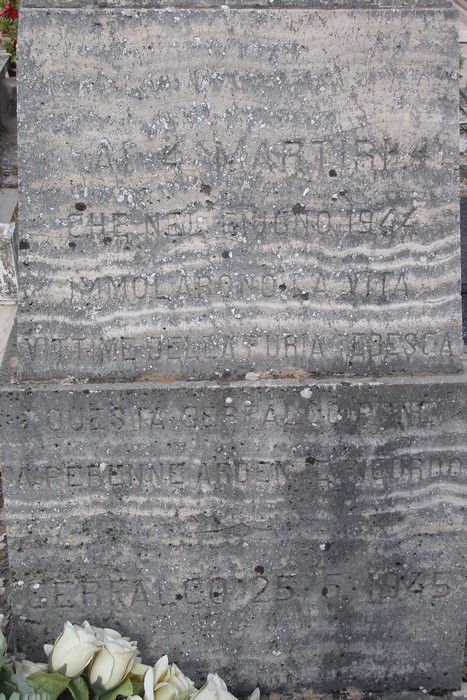 AI 4 MARTIRI
CHE NEL GIUGNO 1944
IMMOLARONO LA VITA
VITTIME DELLA FURIA TEDESCA
QUESTA GERFALCO PONE
A PERENNE ARDENTE RICORDO
GERFALCO 25-5-1945